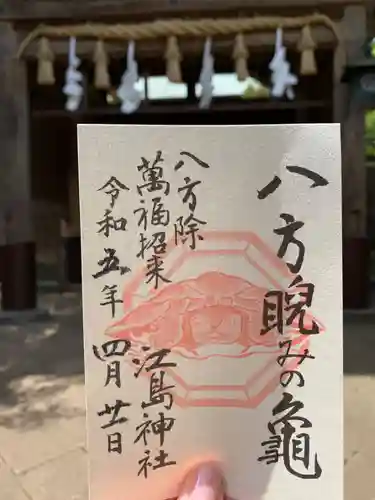 八方睨みの亀
八方除
萬福招来
江島神社
令和五年四月廿日